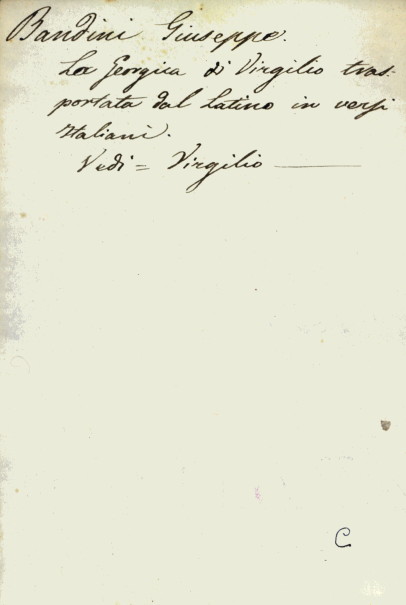 Bandini Giuseppe.
La Georgica di Virgilio tras-
portata dal latino in versi
Italiani.
Vedi = Virgilio ———
C